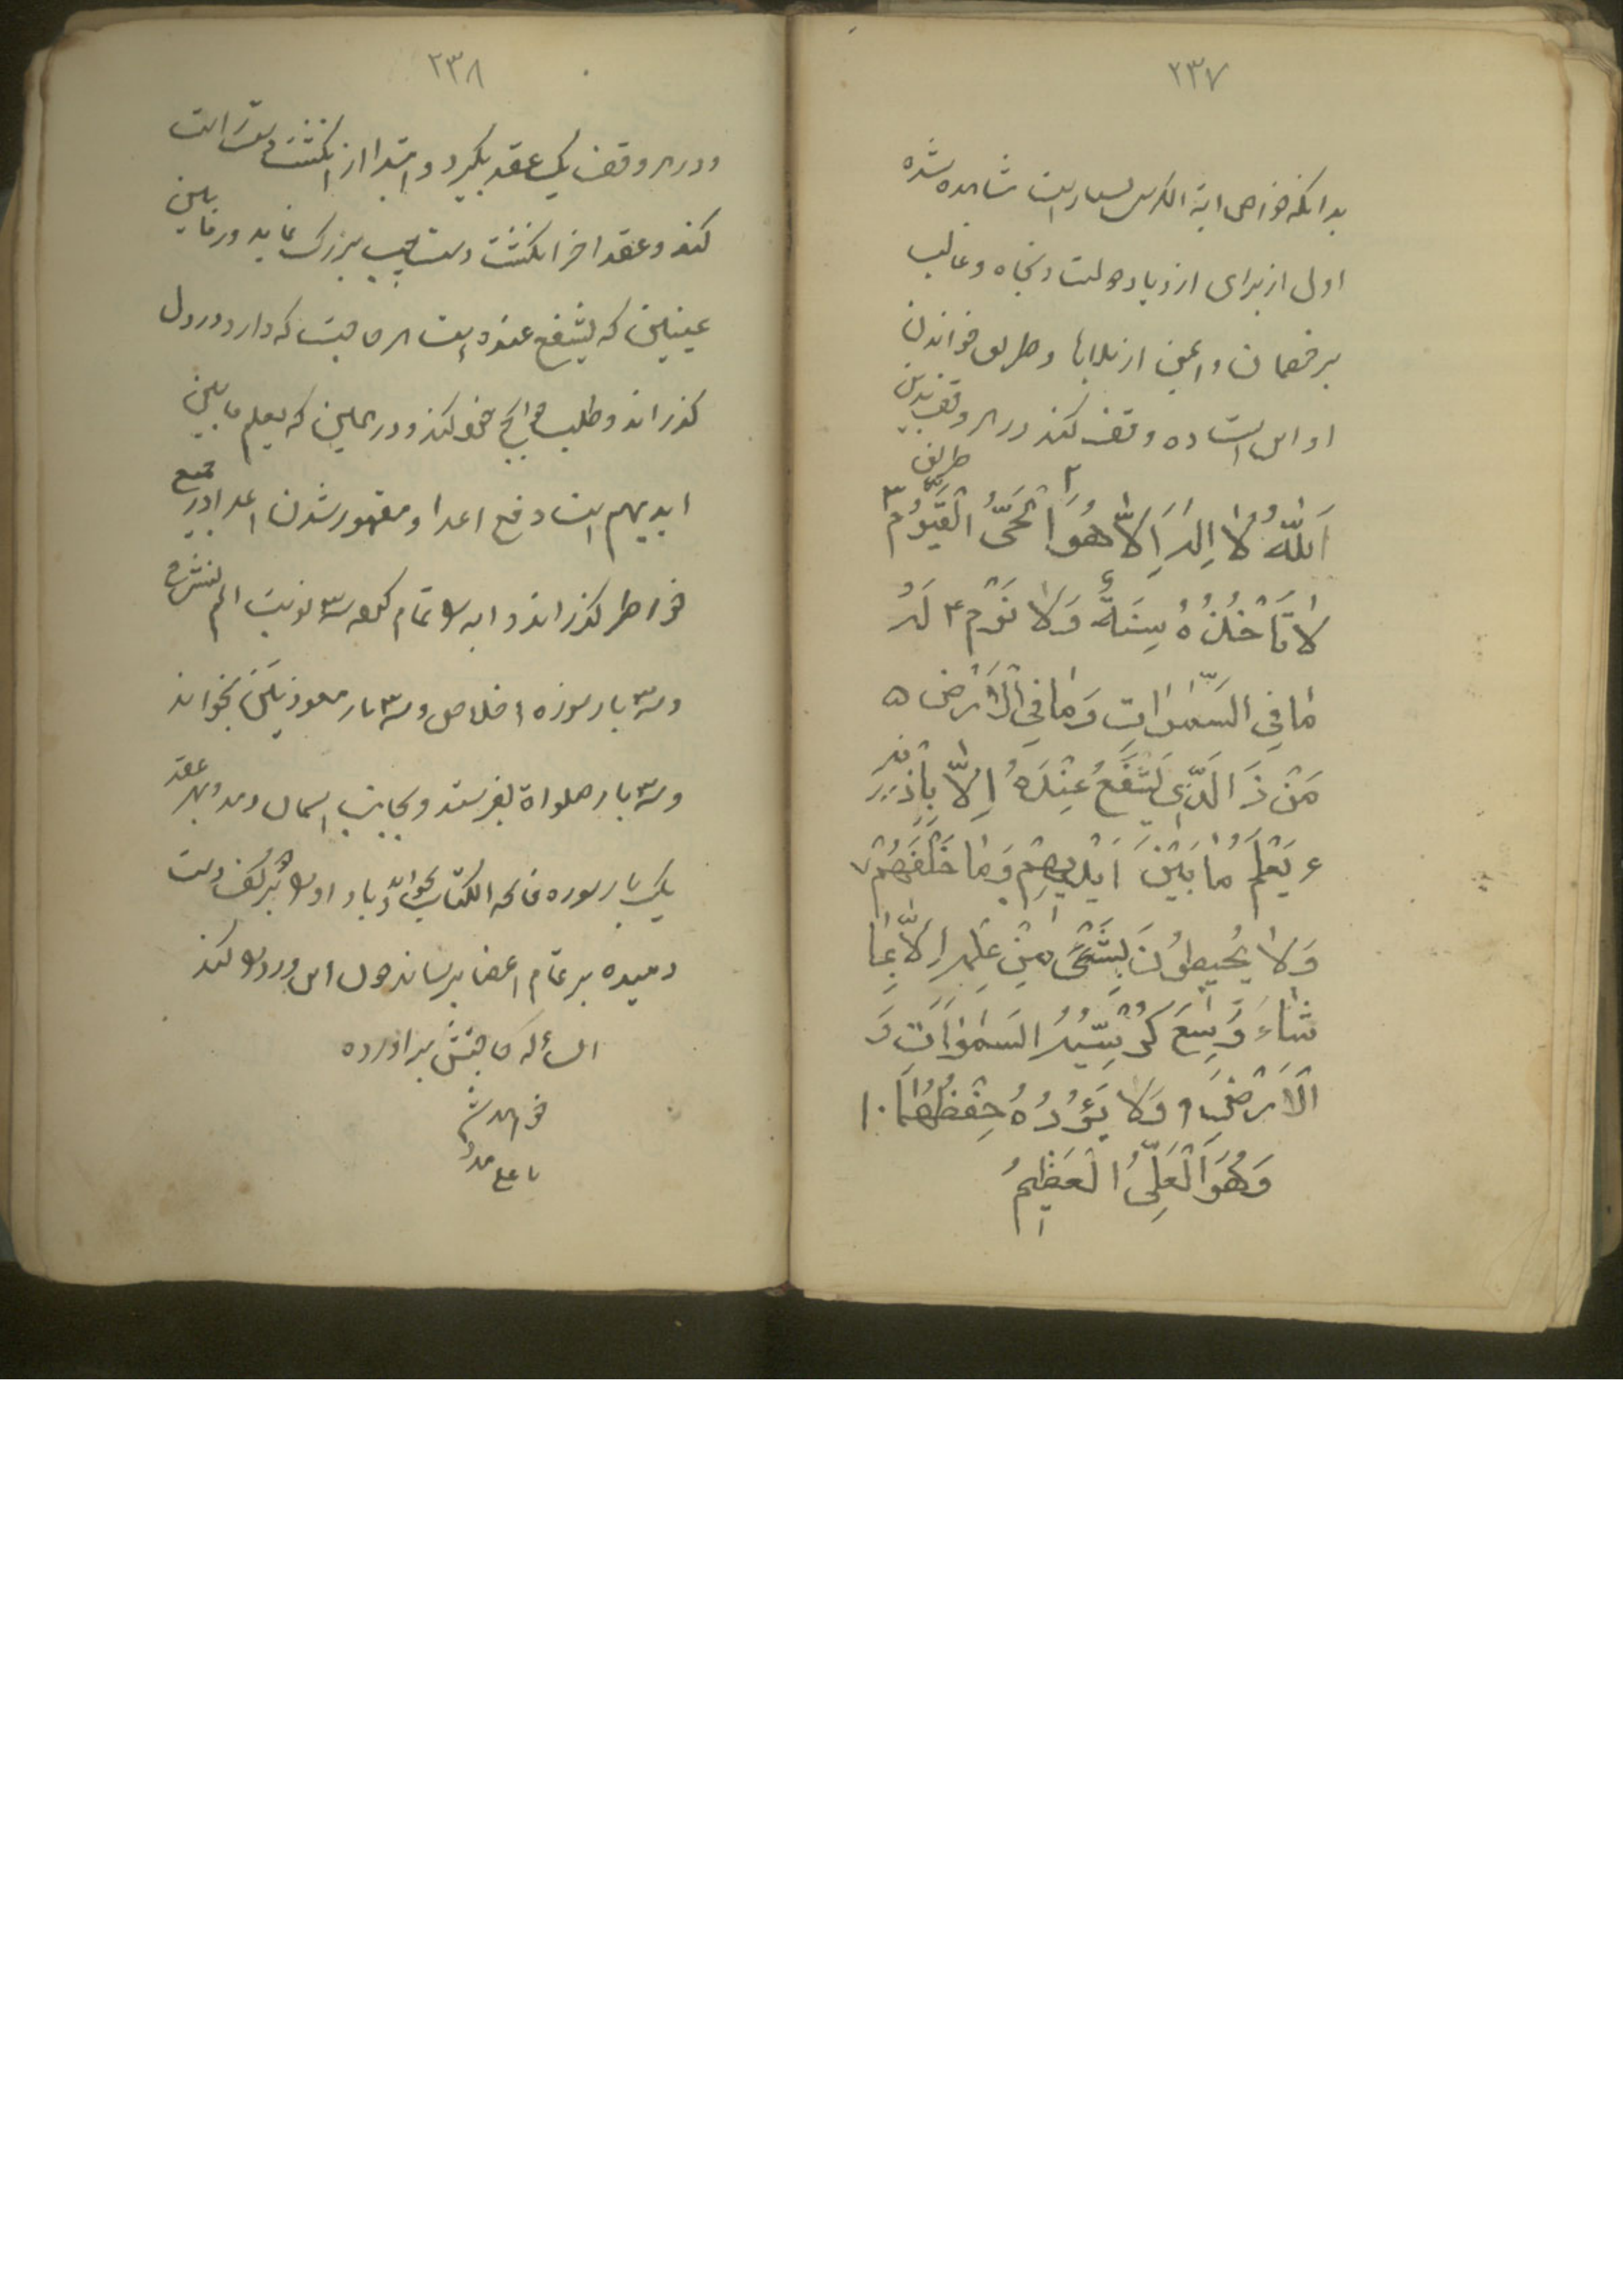 ٢٣٧
بدانکه خواص ایة الکرسی بسیار است مشاهده شده
اول از برای ازدیاد دولت و نجاه و غالب
بر خصمان و ایمن از بلاها و طریق خواندن
او این است ده وقف کند در هر وقف بدین
طریق
اَللّٰهُ لٰا اِلٰهَ اِلّٰا هُوَ ٢ اَلْحَیُّ الْقَیُّوْمُ ٣
لٰا تَأْخُذُهُ سِنَةٌ وَلٰا نَوْمٌ ۴ لَهُ
مٰا فِی السَّمٰوٰاتِ وَمٰا فِی الْاَرْضِ ۵
مَنْ ذَا الَّذِی یَشْفَعُ عِنْدَهُ اِلّٰا بِاِذْنِهِ
۶ یَعْلَمُ مٰا بَیْنَ اَیْدِیهِمْ وَمٰا خَلْفَهُمْ ٧
وَلٰا یُحِیطُونَ بِشَیْءٍ مِنْ عِلْمِهِ اِلّٰا بِمٰا
شٰاءَ وَسِعَ کُرْسِیُّهُ السَّمٰوٰاتِ وَ
الْاَرْضَ ٩ وَلٰا یَؤُدُهُ حِفْظُهُمٰا ١٠
وَهُوَ الْعَلِیُّ الْعَظِیمُ
٢٣٨
و در هر وقف یک عقد بگیرد و ابتدا از انگشت دست راست
کند و عقد اخر انگشت دست چپ بزرگ نماید و در مابین
عینین که یشفع عنده است هر حاجت که دارد در دل
گذراند و طلب حوایج خود کند و در میمین که یعلم ما بین
ایدیهم است دفع اعدا و مقهور شدن اعدا در جمیع
خواطر گذراند و ایه را تمام کرده ٣ نوبت الم نشرح
و ٣ بار سوره اخلاص و ٣ بار معوذتین بخواند
و ٣ بار صلواة بفرستد و بجانب اسمان دمد و بهر عقد
یک بار سوره فاتحه الکتاب بخواند و باد او را بر کف دست
دمیده بر تمام اعضا برساند چون این ورد را کند
انشاءالله حاجتش براورده
خواهد شد
یا علی مدد